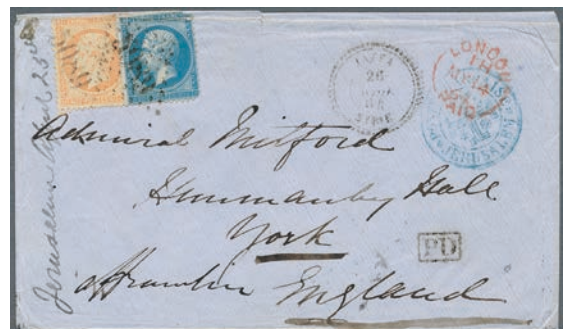 Jerusalem April 25th
JAFFA
26
SYRIE
LONDON
PAID
JERUSALEM
Admiral Mitford
Hunmanby Hall
York
PD
England